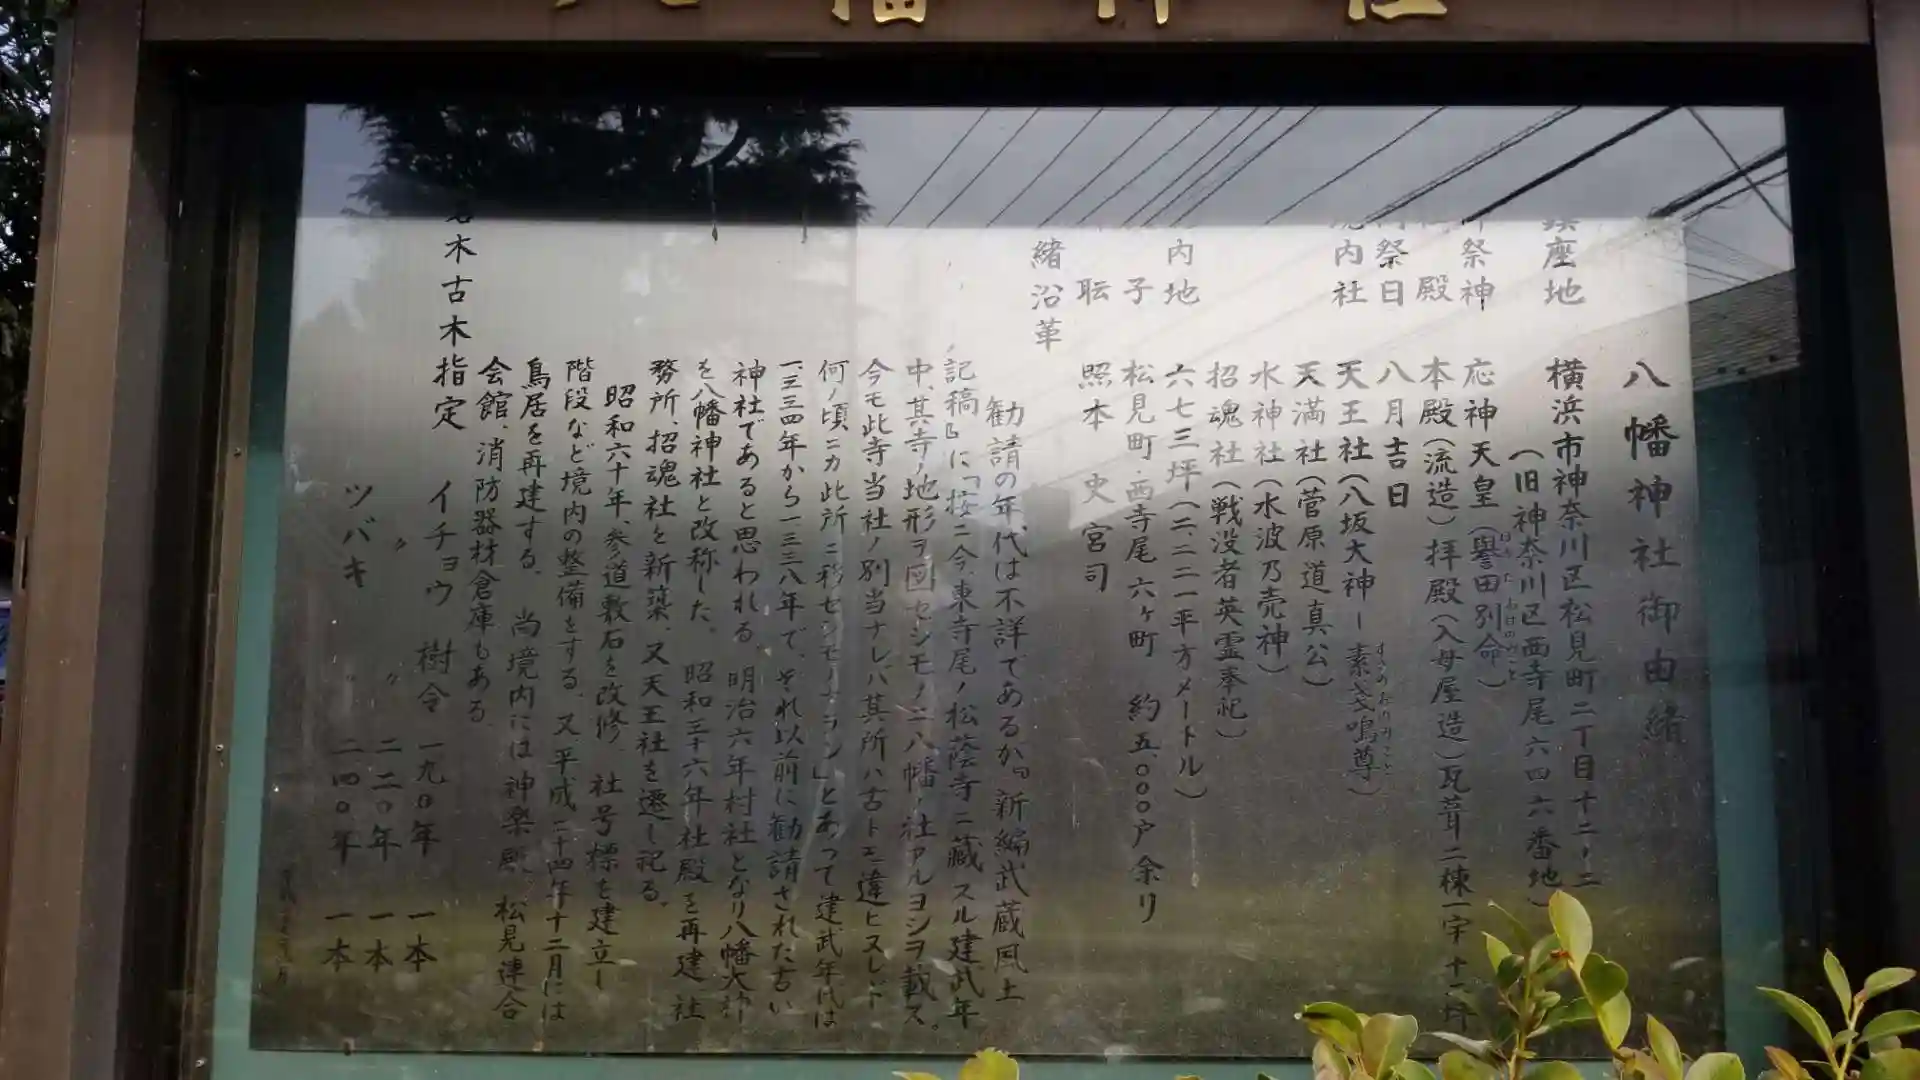 幡神社
八幡神社御由緒
鎮座地 横浜市神奈川区松見町二丁目十二ノ二
(旧神奈川区西寺尾六四六番地)
祭神 応神天皇(譽田別命)
殿 本殿(流造)拝殿(入母屋造)瓦葺二棟一宇十二坪
祭日 八月吉日
内社 天王社(八坂大神ー素戔鳴尊)
天満社(菅原道真公)
水神社(水波乃売神)
招魂社(戦没者英霊奉祀)
内地 六七三坪(二、二二一平方メートル)
子 松見町・西寺尾六ヶ町 約五、〇〇〇戸余り
照本 史 宮司
緒沿革
勧請の年代は不詳であるが『新編武蔵風土
記稿』に「按ニ今、東寺尾ノ松蔭寺ニ蔵スル建武年
中、其寺ノ地形ヲ図セシモノニ八幡ノ社アルヨシヲ載ス。
今モ此寺当社ノ別当ナレバ其所ハ古ト違ヒスレド
何ノ頃ニカ此所ニ移セシモノナラン」とあって建武年代は
一、三三四年から一三三八年で、それ以前に勧請された古い
神社であると思われる。明治六年村社となり八幡大神
を八幡神社と改称した。 昭和三十六年社殿を再建、社
務所、招魂社を新築、又天王社を遷し祀る。
昭和六十年、参道敷石を改修、社号標を建立し
階段など境内の整備をする。又、平成二十四年十二月には
鳥居を再建する。 尚境内には神楽殿、松見連合
会館、消防器材倉庫もある。
名木古木指定 イチョウ 樹令 一九〇年 一本
〃 〃 二二〇年 一本
ツバキ 〃 二四〇年 一本